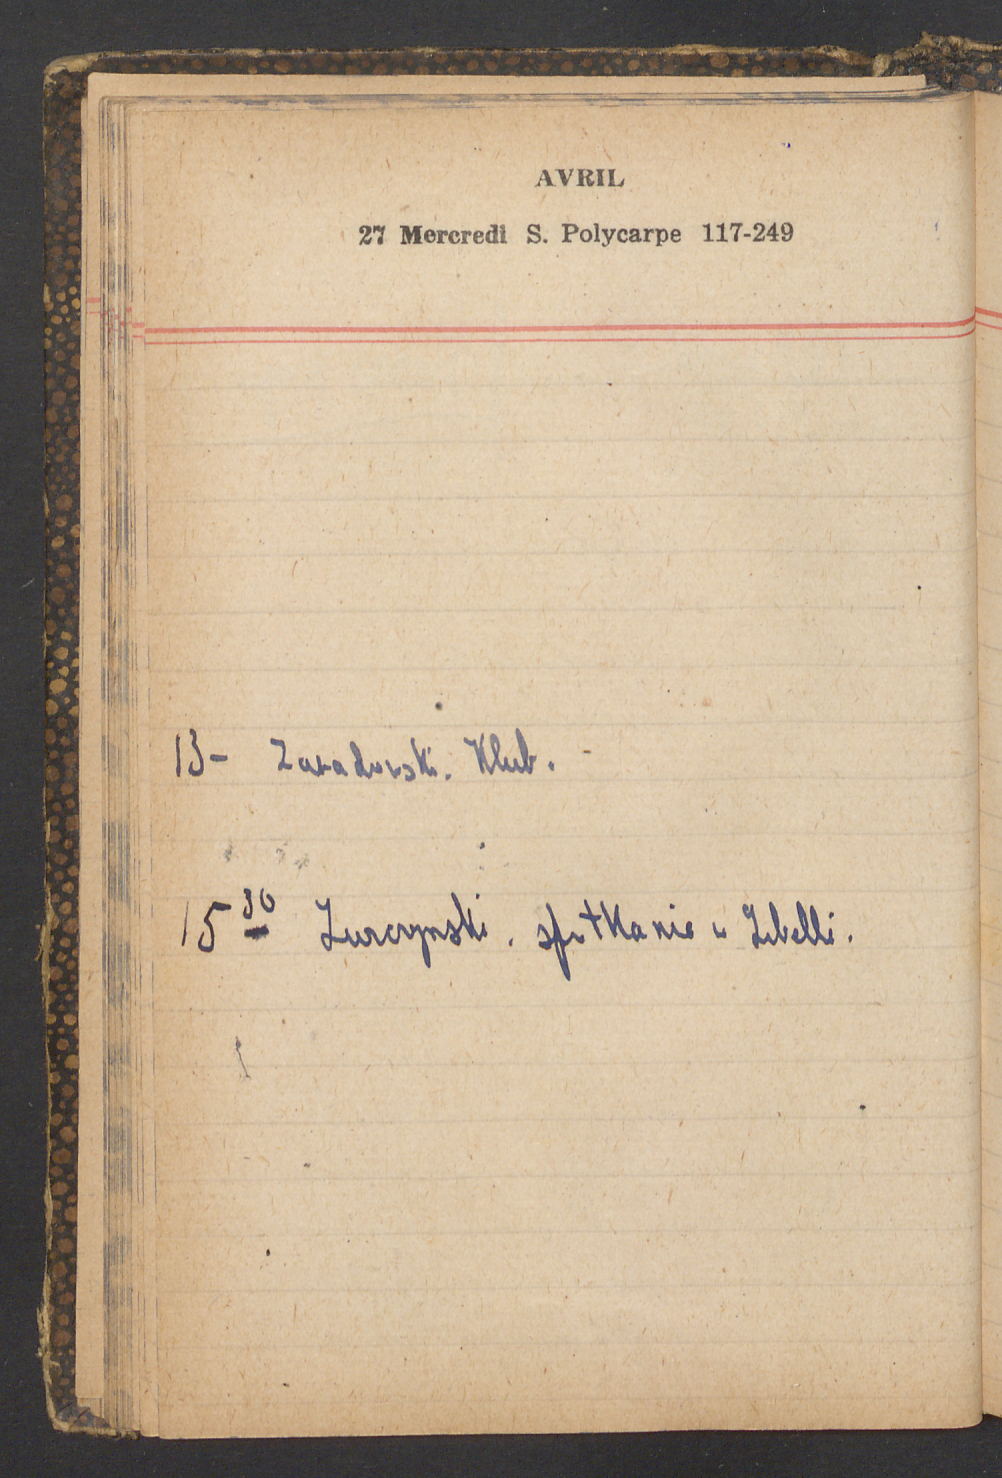 AVRIL
27 Mercredi S. Polycarpe 117-249
13- Zawadowski. Klub. -
15 30 Jurczynski. spotkanie u Libelli.